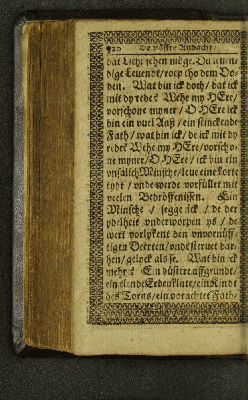 920 De vöffte Andacht/
dat Licht sehen möge. Du leuen-
dige Leuendt/ roep tho dem Do-
den. Wat bin ick doch/ dat ick
mit dy rede? Wehe my HEre/
vorschone myner/ O HEre ick
bin ein vuel Aaß/ ein stinckende
Fath/ wat bin ick/ de ick mit dy
rede? Wehe my HEre/ vorscho-
ne myner/ O HEre/ ick bin ein
vnsalich Minsche/ leue eine korte
tydt/ vnde werde vorfüllet mit
velen Bedröffenissen. Ein
Minsche/ segge ick/ de der
ydelheit vnderworpen ys/ de
wert vorlykent den vnvornüff-
tigen Deerten/ vnde steruet dar-
hen/ gelyck als se. Wat bin ick
mehr? Ein düster affgrundt/
ein elende Erdenklute/ ein Kindt
des Torns/ ein vorachtet Fath/